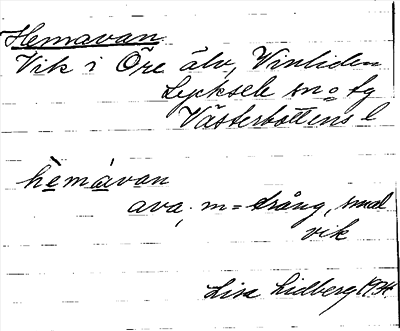 Hemavan
Vik i Öre älv, Vinliden
Lycksele sn o fg
Västerbottens l
hèmávan
ava, m = trång, smal
vik
Lisa Lidberg 1934.